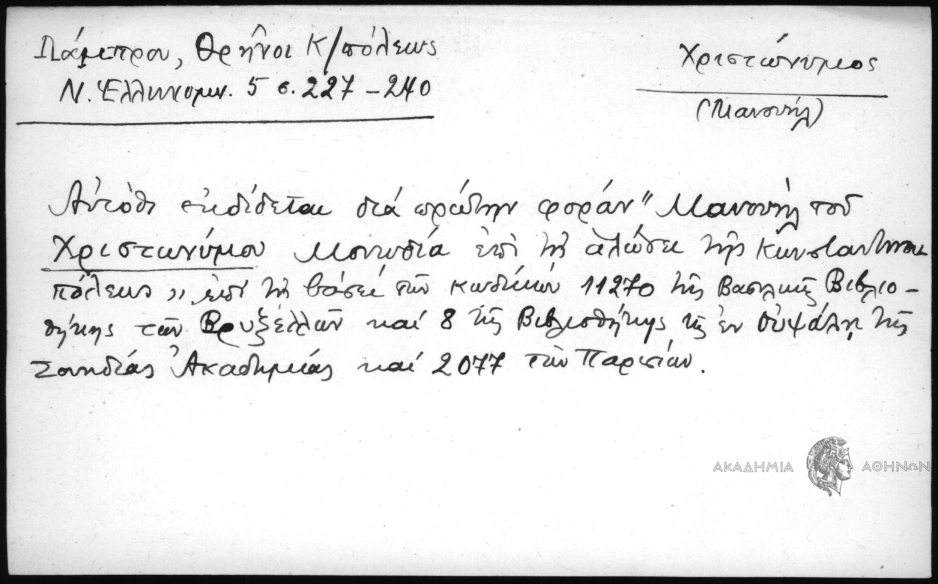 Λάμπρου, Θρῆνοι Κ/πόλεως
Ν. Ἑλληνομν. 5 σ. 227-240
Χριστώνυμος
(Μανουήλ)
Αὐτόθι ἐκδίδεται διά πρώτην φοράν "Μανουήλ τοῦ
Χριστωνύμου Μονωδία ἐπί τῇ ἁλώσει τῆς Κωνσταντινου
πόλεως" ἐπί τῇ βάσει τῶν κωδίκων 11270 τῆς Βασιλικῆς Βιβλιο-
θήκης τῶν Βρυξελλῶν καί 8 τῆς Βιβλιοθήκης τῆς ἐν Οὐψάλῃ τῆς
Σουηδίας Ἀκαδημίας καί 2077 τῶν Παρισίων.
ΑΚΑΔΗΜΙΑ ΑΘΗΝΩΝ